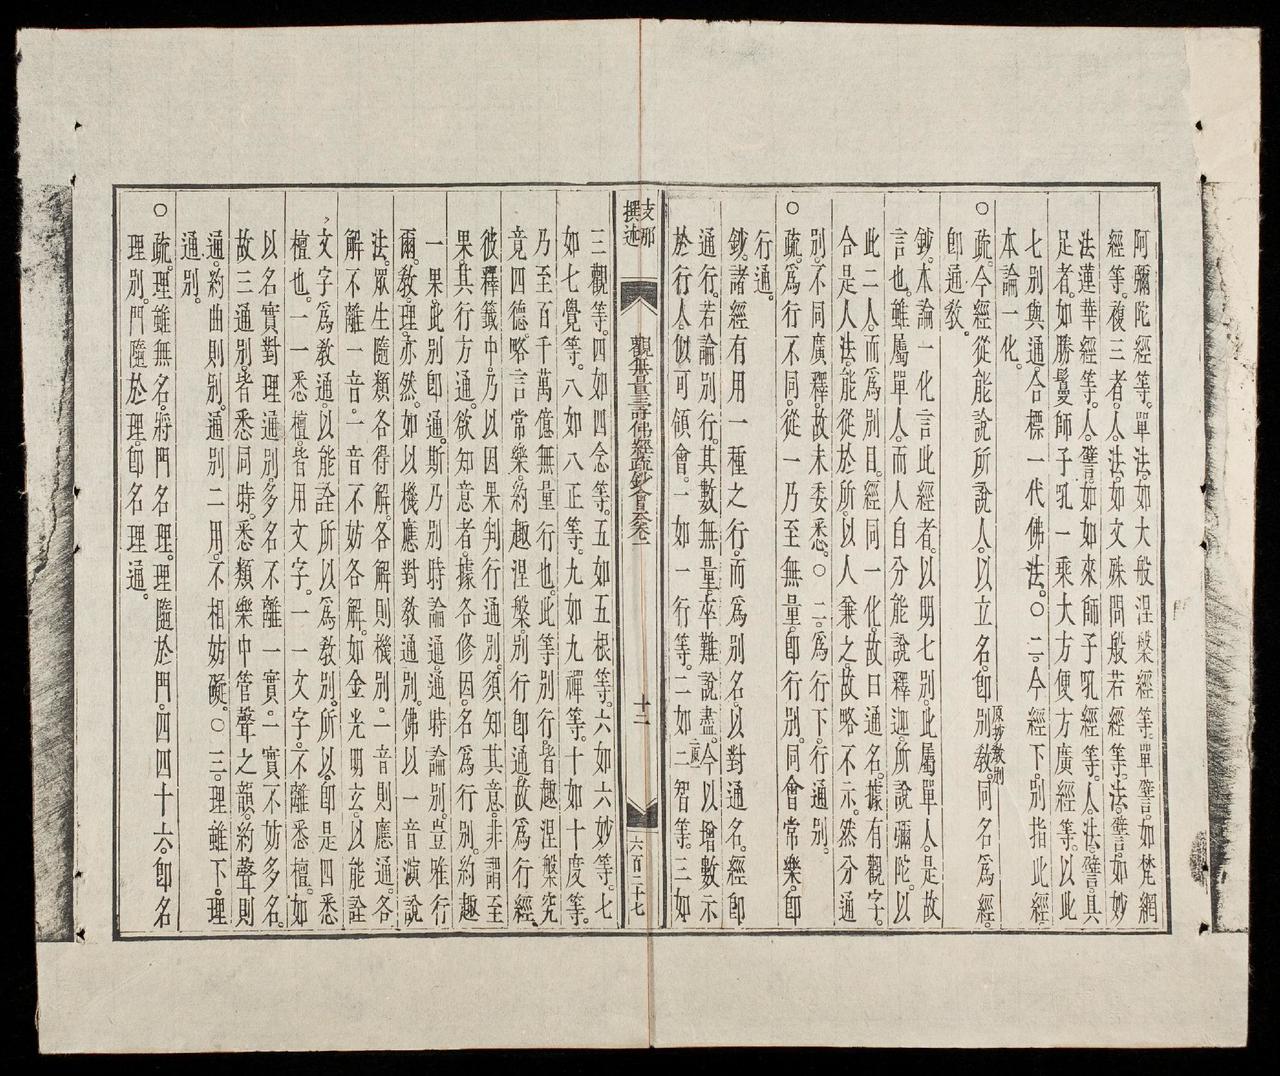 阿彌陀經等。單法。如大般涅槃經等。單譬。如梵網
經等。複三者。人法。如文殊問般若經等。法譬。如妙
法蓮華經等。人譬。如如來師子吼經等。人法譬。具
足者。如勝鬘師子吼一乘大方便方廣經等。以此
七別與通。合標一代佛法。○二。今經下。別指此經
本論一化。
○疏。今經從能說所說人。以立名。即別教。原抄教則同名為經。
即通教。
鈔。本論一化言此經者。以明七別。此屬單人。是故
言也。雖屬單人。而人自分能說釋迦。所說彌陀。以
此二人。而為別目。經同一化。故曰通名。據有觀字。
合是人法。能從於所。以人兼之。故略不示。然分通
別。不同廣釋。故未委悉。○二。為行下。行通別。
○疏。為行不同。從一乃至無量。即行別。同會常樂。即
行通。
鈔。諸經有用一種之行。而為別名。以對通名。經即
通行。若論別行。其數無量。卒難說盡。今以增數示
於行人。似可領會。一如一行等。二如二原一智等。三如
支那
撰述
觀無量壽佛經疏鈔會本卷一
十二
六百二十七
三觀等。四如四念等。五如五根等。六如六妙等。七
如七覺等。八如八正等。九如九禪等。十如十度等。
乃至百千萬億無量行也。此等別行。皆趣涅槃究
竟四德。略言常樂。約趣涅槃。別行即通。故為行經
彼釋籤中。乃以因果判行通別。須知其意。非謂至
果。其行方通。欲知意者。據各修因。名為行別。約趣
一果。此別即通。斯乃別時論通。通時論別。豈唯行
爾。教理亦然。如以機應對教通別。佛以一音演說
法。眾生隨類各得解。各解則機別。一音則應通。各
解不離一音。一音不妨各解。如金光明玄。以能詮
文字為教通。以能詮所以為教別。所以即是四悉
檀也。一一悉檀。皆用文字。一一文字。不離悉檀。如
以名實對理通別。多名不離一實。一實不妨多名。
故三通別。皆悉同時。悉類樂中管聲之韻。約聲則
通。約曲則別。通別二用。不相妨礙。○三。理雖下。理
通別。
○疏。理雖無名。將門名理。理隨於門。四四十六。即名
理別。門隨於理。即名理通。